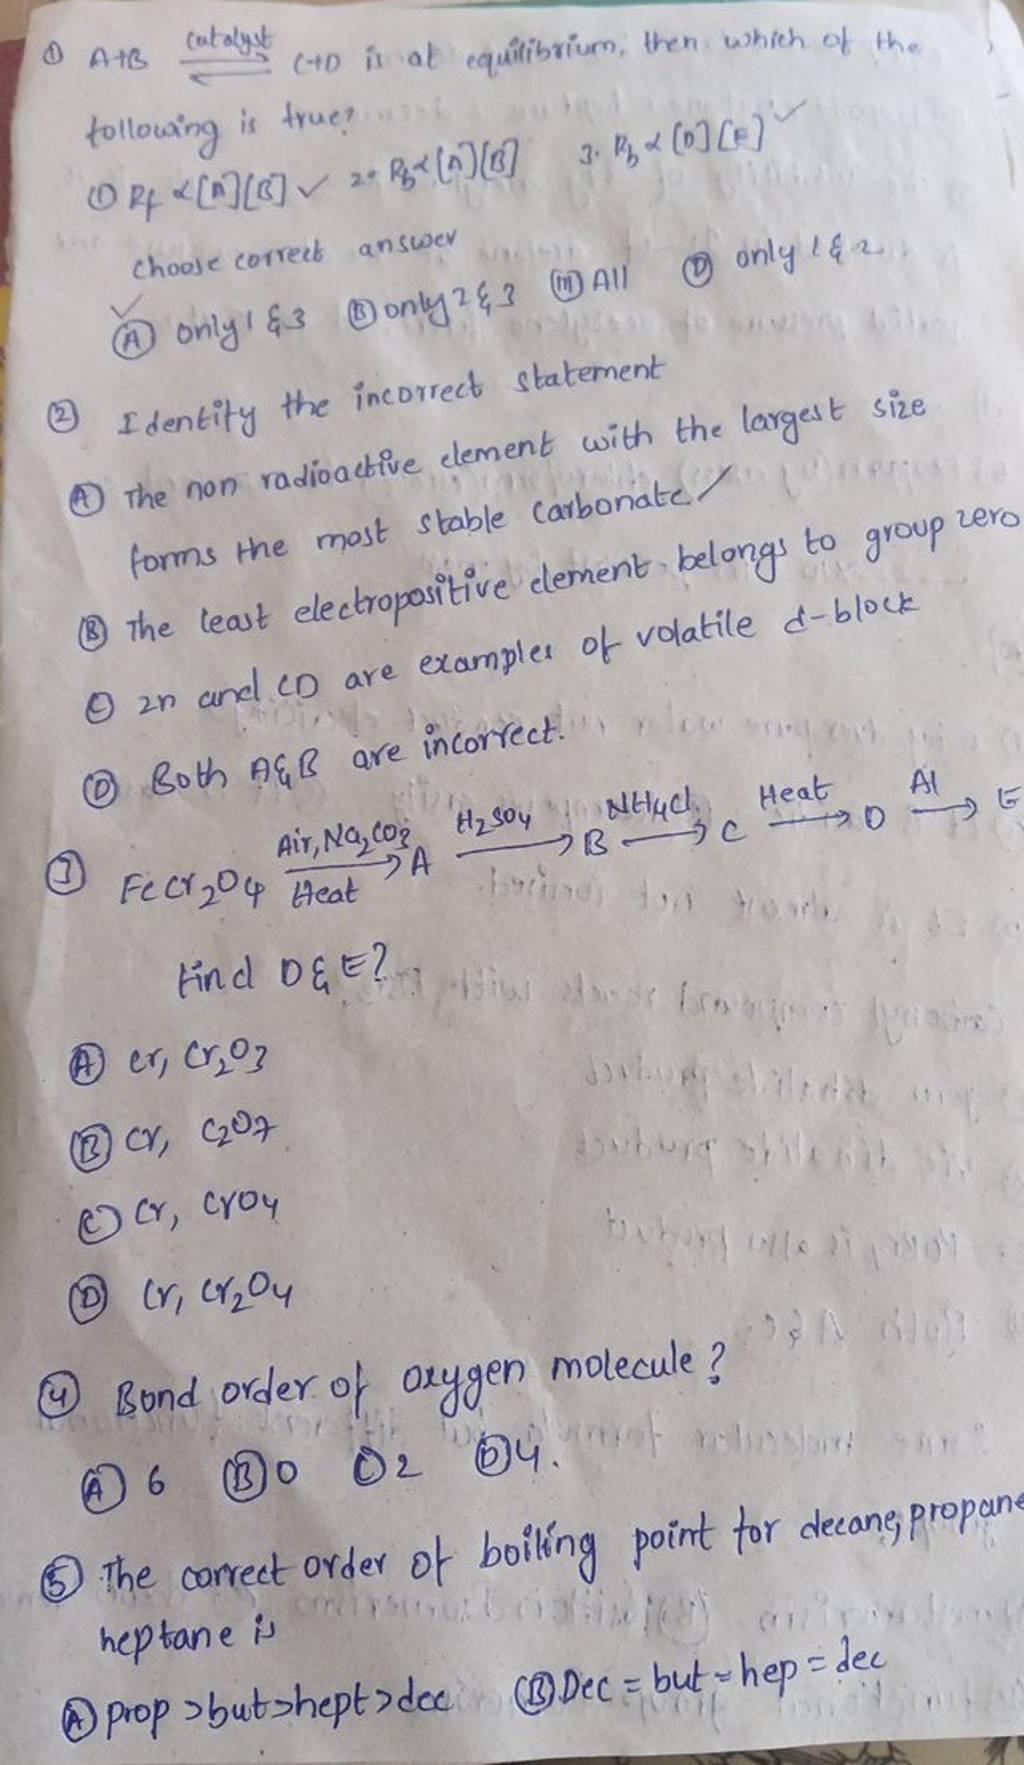 ① A+B catalyst ⇌ C+D is at equilibrium, then which of the
following is true?
① Rf ∝ [A][B] ✓ 2. Rb ∝ [A][B] 3. Rb ∝ [D][E] ✓
choose correct answer
✓
Ⓐ only 1 & 3 Ⓑ only 2 & 3 (III) All Ⓓ only 1 & 2
② Identity the incorrect statement
Ⓐ The non radioactive element with the largest size
forms the most stable carbonate /
Ⓑ The least electropositive element belongs to group zero
Ⓒ zn and CD are examples of volatile d-block
Ⓓ Both A & B are incorrect.
③ FeCr₂O₄ Air, Na₂CO₃ → Heat A H₂SO₄ → B NH₄Cl → C Heat → D Al → E
Find D & E?
Ⓐ Cr, Cr₂O₃
Ⓑ Cr, C₂O₇
Ⓒ Cr, CrO₄
Ⓓ Cr, Cr₂O₄
④ Bond order of oxygen molecule?
Ⓐ 6 Ⓑ 0 Ⓒ 2 Ⓓ 4.
⑤ The correct order of boiling point for decane, propane
heptane is
Ⓐ prop > but > hept > dec Ⓑ Dec = but = hep = dec